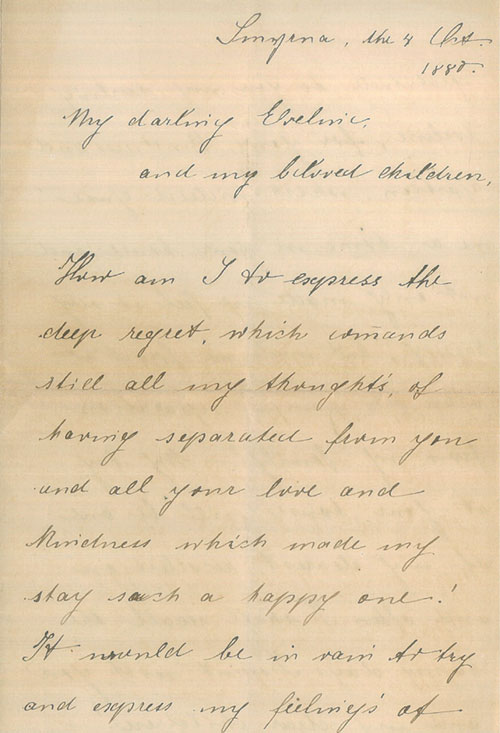 Smyrna, the 8 Oct.
1880.
My darling Eveline,
and my beloved children,
How am I to express the
deep regret, which comands
still all my thoughts, of
having separated from you
and all your love and
kindness which made my
stay such a happy one!
It would be in vain to try
and express my feelings of